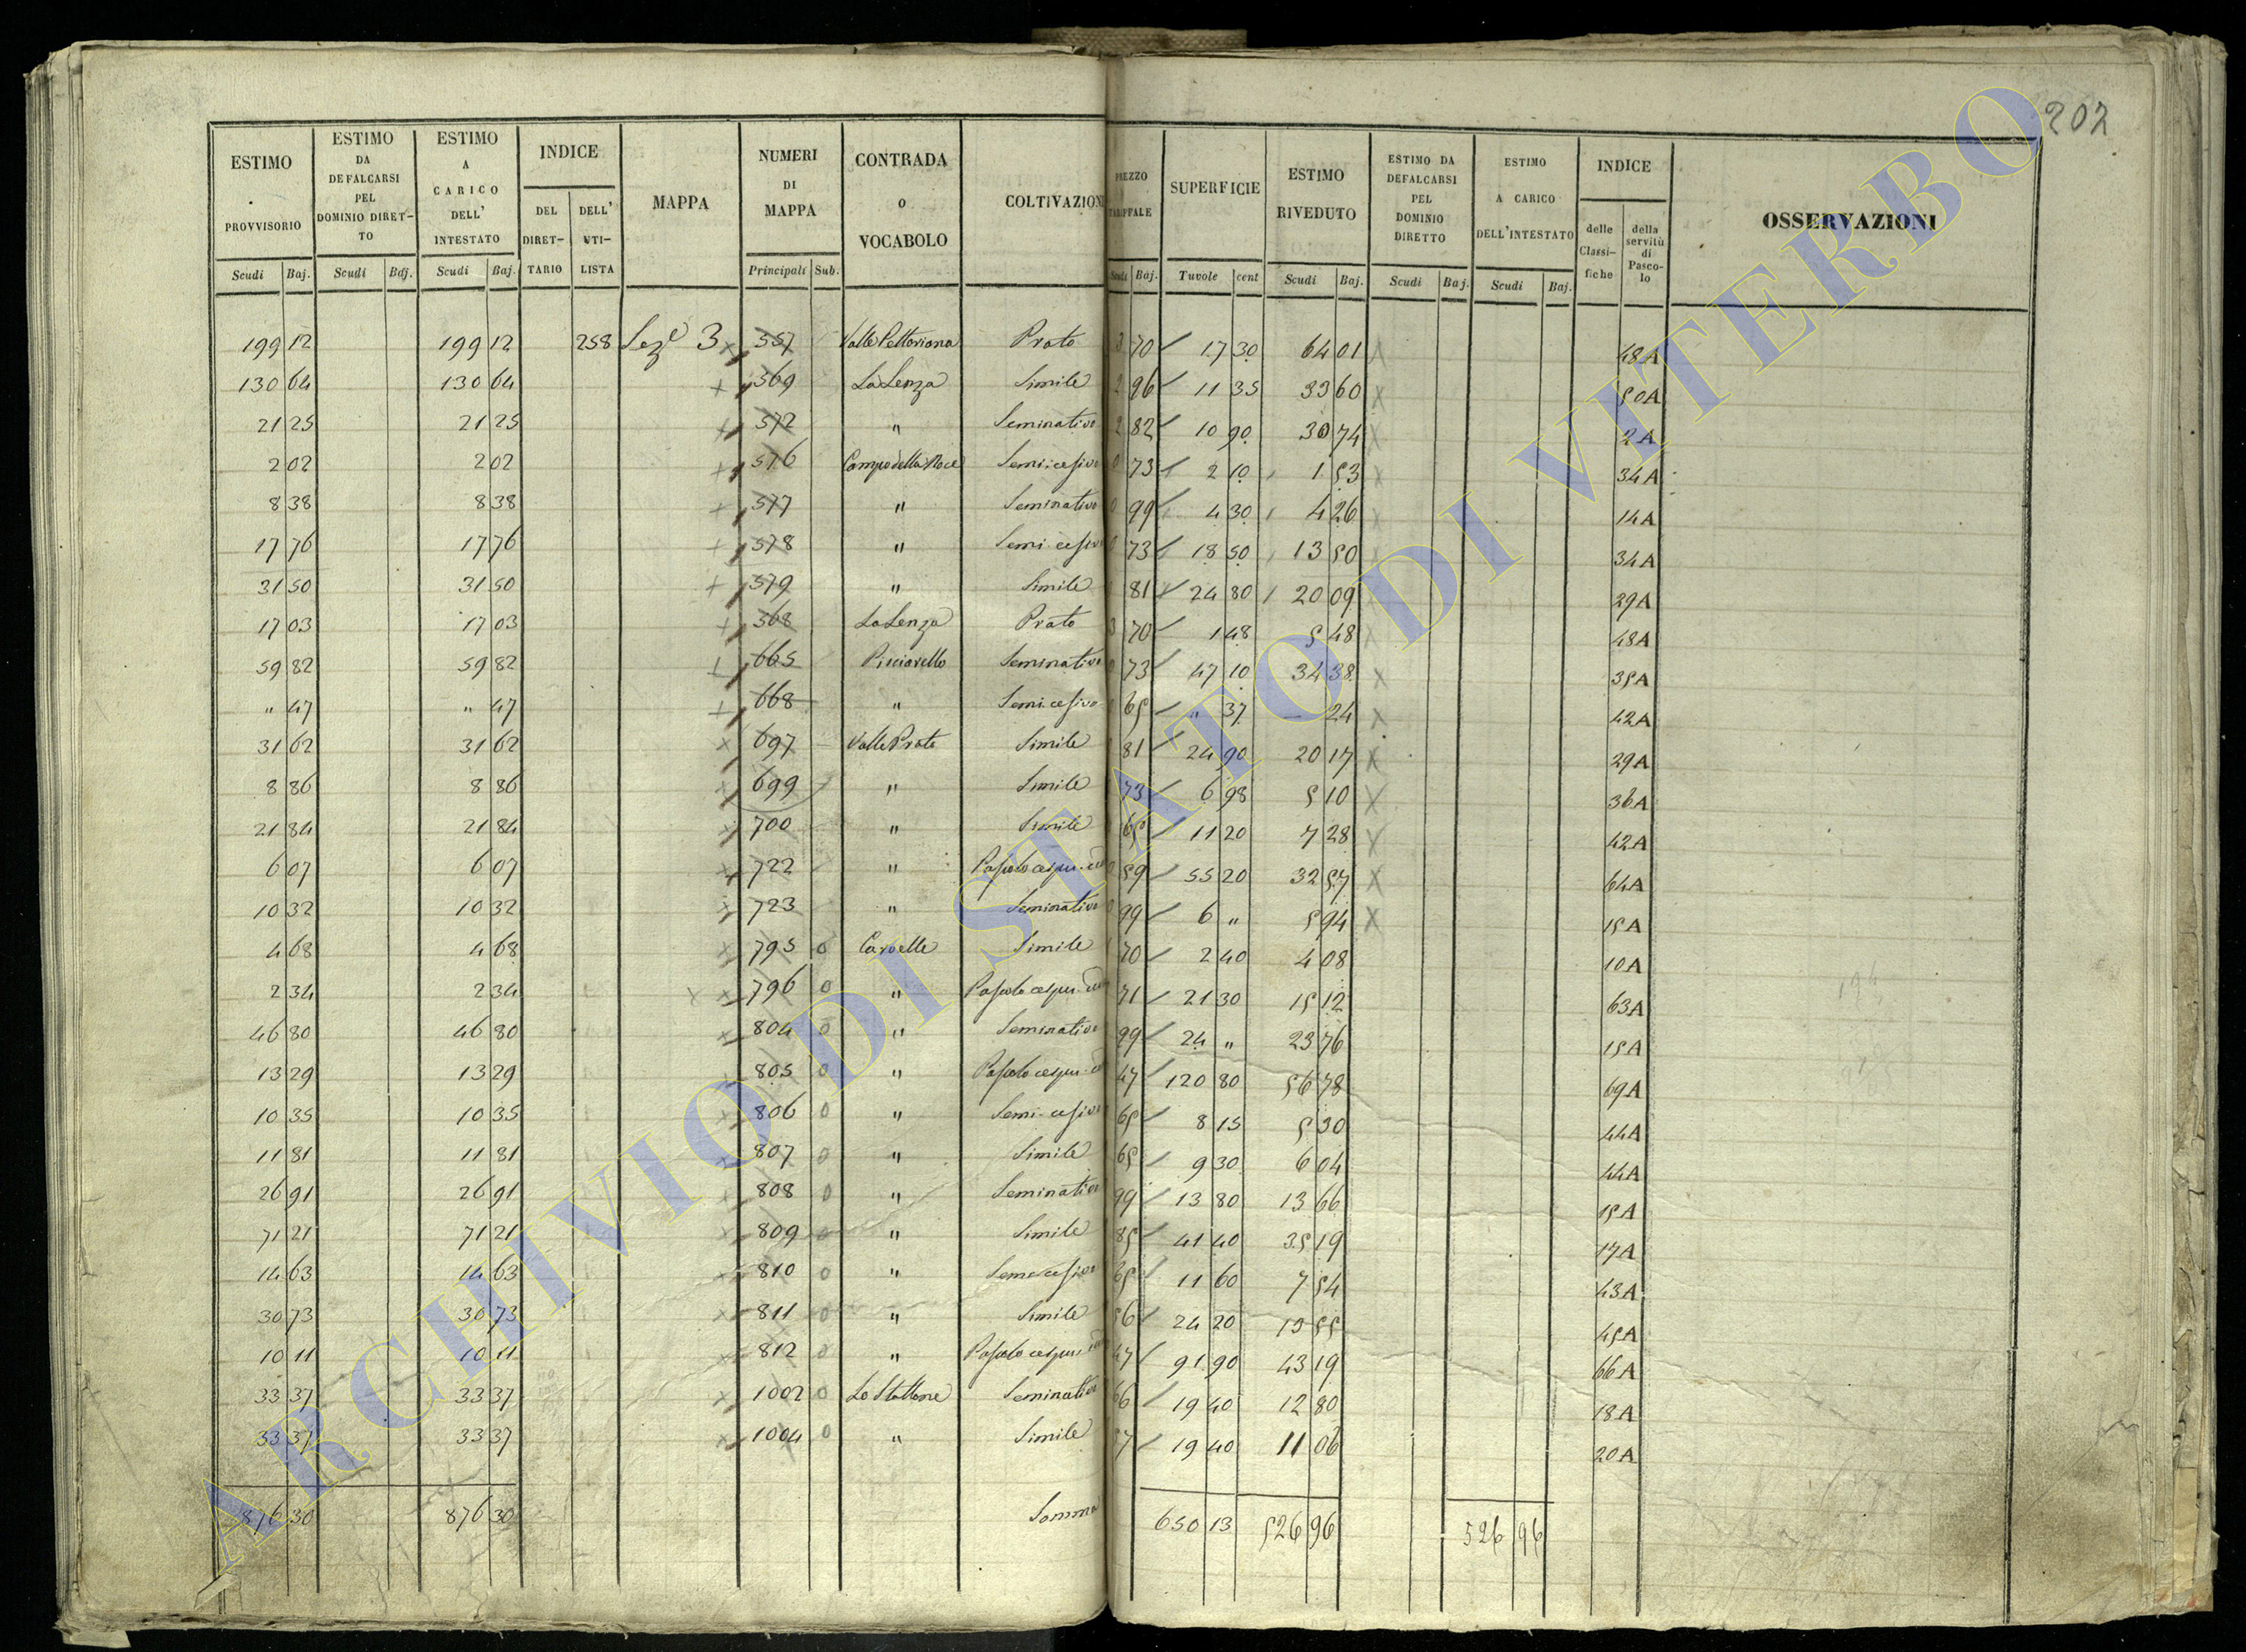 202
ESTIMO PROVVISORIO Scudi Baj.
ESTIMO DA DEFALCARSI PEL DOMINIO DIRET-TO Scudi Baj.
ESTIMO A CARICO DELL' INTESTATO Scudi Baj.
INDICE DEL DIRET-TARIO DELL' UTI-LISTA
MAPPA
NUMERI DI MAPPA Principali Sub.
CONTRADA o VOCABOLO
COLTIVAZION
PREZZO TARIFFALE Scudi Baj.
SUPERFICIE Tuvole cent
ESTIMO RIVEDUTO Scudi Baj.
ESTIMO DA DEFALCARSI PEL DOMINIO DIRETTO Scudi Baj.
ESTIMO A CARICO DELL'INTESTATO Scudi Baj.
INDICE delle Classi-fiche della servitù di Pasco-lo
OSSERVAZIONI
199 12 199 12 258 Sez.e 3 557 Valle Pettoriana Prato 3 70 17 30 64 01 48A
130 64 130 64 569 La Lenza Simile 2 96 11 35 33 60 50A
21 25 21 25 572 " Seminativo 2 82 10 90 30 74 2A
2 02 2 02 576 Campo della Noce Semi:cesivo 0 73 2 10 1 53 34A
8 38 8 38 577 " Seminativo 0 99 4 30 4 26 14A
17 76 17 76 578 " Semi cesivo 73 18 50 13 50 34A
31 50 31 50 579 " Simile 81 24 80 20 09 29A
17 03 17 03 568 La Lenza Prato 3 70 1 48 5 48 48A
59 82 59 82 665 Pisciarello Seminativo 73 47 10 34 38 35A
" 47 " 47 668 " Semi.cesivo 65 " 37 — 24 42A
31 62 31 62 697 Valle Prato Simile 81 24 90 20 17 29A
8 86 8 86 699 " Simile 73 6 98 5 10 36A
21 84 21 84 700 " Simile 65 11 20 7 28 42A
6 07 6 07 722 " Pascolo cespu. 59 55 20 32 57 64A
10 32 10 32 723 " Seminativo 99 6 " 5 94 15A
4 68 4 68 795 0 Carvelle Simile 70 2 40 4 08 10A
2 34 2 34 796 0 " Pascolo cespu. 71 21 30 15 12 63A
46 80 46 80 804 0 " Seminativo 99 24 " 23 76 15A
13 29 13 29 805 0 " Pascolo cespu. 47 120 80 56 78 69A
10 35 10 35 806 0 " Semi-cesivo 65 8 15 5 30 44A
11 81 11 81 807 0 " Simile 65 9 30 6 04 44A
26 91 26 91 808 0 " Seminativo 99 13 80 13 66 15A
71 21 71 21 809 0 " Simile 85 41 40 35 19 17A
14 63 14 63 810 0 " Semi cesivo 65 11 60 7 54 43A
30 73 30 73 811 0 " Simile 56 24 20 13 55 45A
10 11 10 11 812 0 " Pascolo cespu. 47 91 90 43 19 66A
33 37 33 37 1002 0 Lo Stallone Seminativo 66 19 40 12 80 18A
33 37 33 37 1004 0 " Simile 57 19 40 11 06 20A
876 30 876 30 Somma 650 13 526 96 526 96
ARCHIVIO DI STATO DI VITERBO